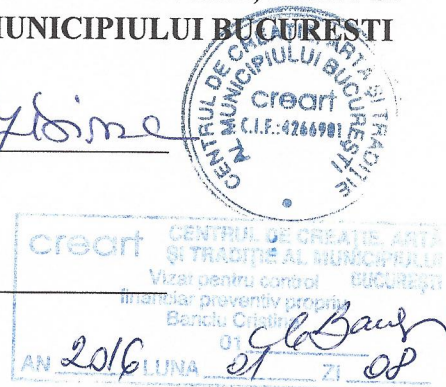 MUNICIPIULUI BUCURESTI
CENTRUL DE CREAȚIE, ARTĂ ȘI TRADIȚIE
AL MUNICIPIULUI BUCUREȘTI
creart
C.I.F.:4266981
creart CENTRUL DE CREAȚIE, ARTĂ
ȘI TRADIȚIE AL MUNICIPIULUI
BUCUREȘTI
Vizat pentru control
financiar preventiv propriu
Banciu Cristin
01
AN 2016 LUNA 01 ZI 08